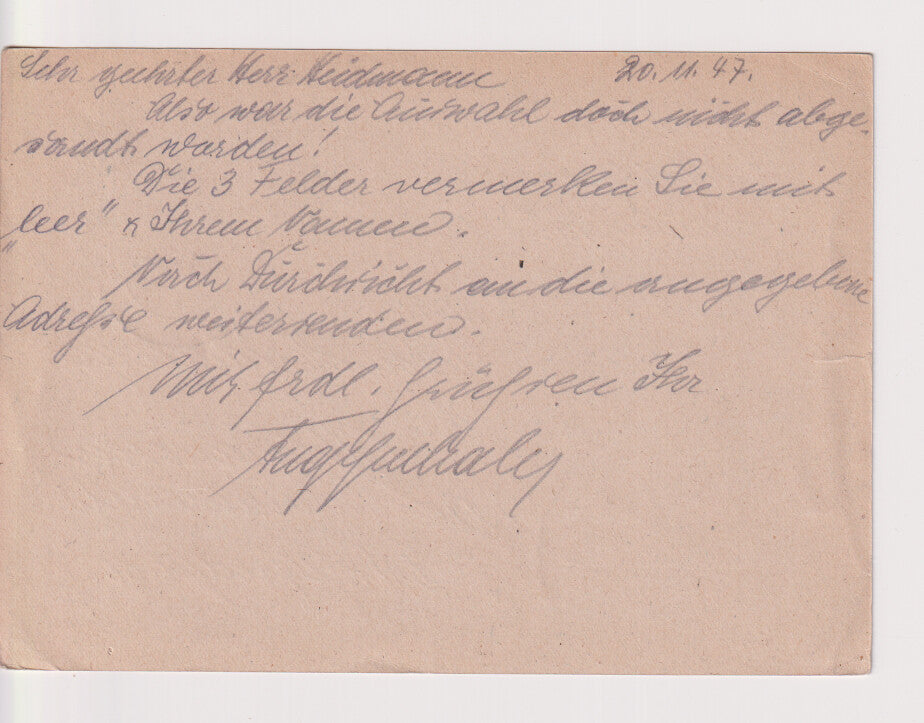 Sehr geehrter Herr Heidmann 20.11.47.
Also war die Auswahl doch nicht abge-
sandt worden!
Die 3 Felder vermerken Sie mit
„leer" & Ihrem Namen.
Nach Durchsicht an die angegebene
Adresse weitersenden.
Mit frdl. Grüßen Ihr